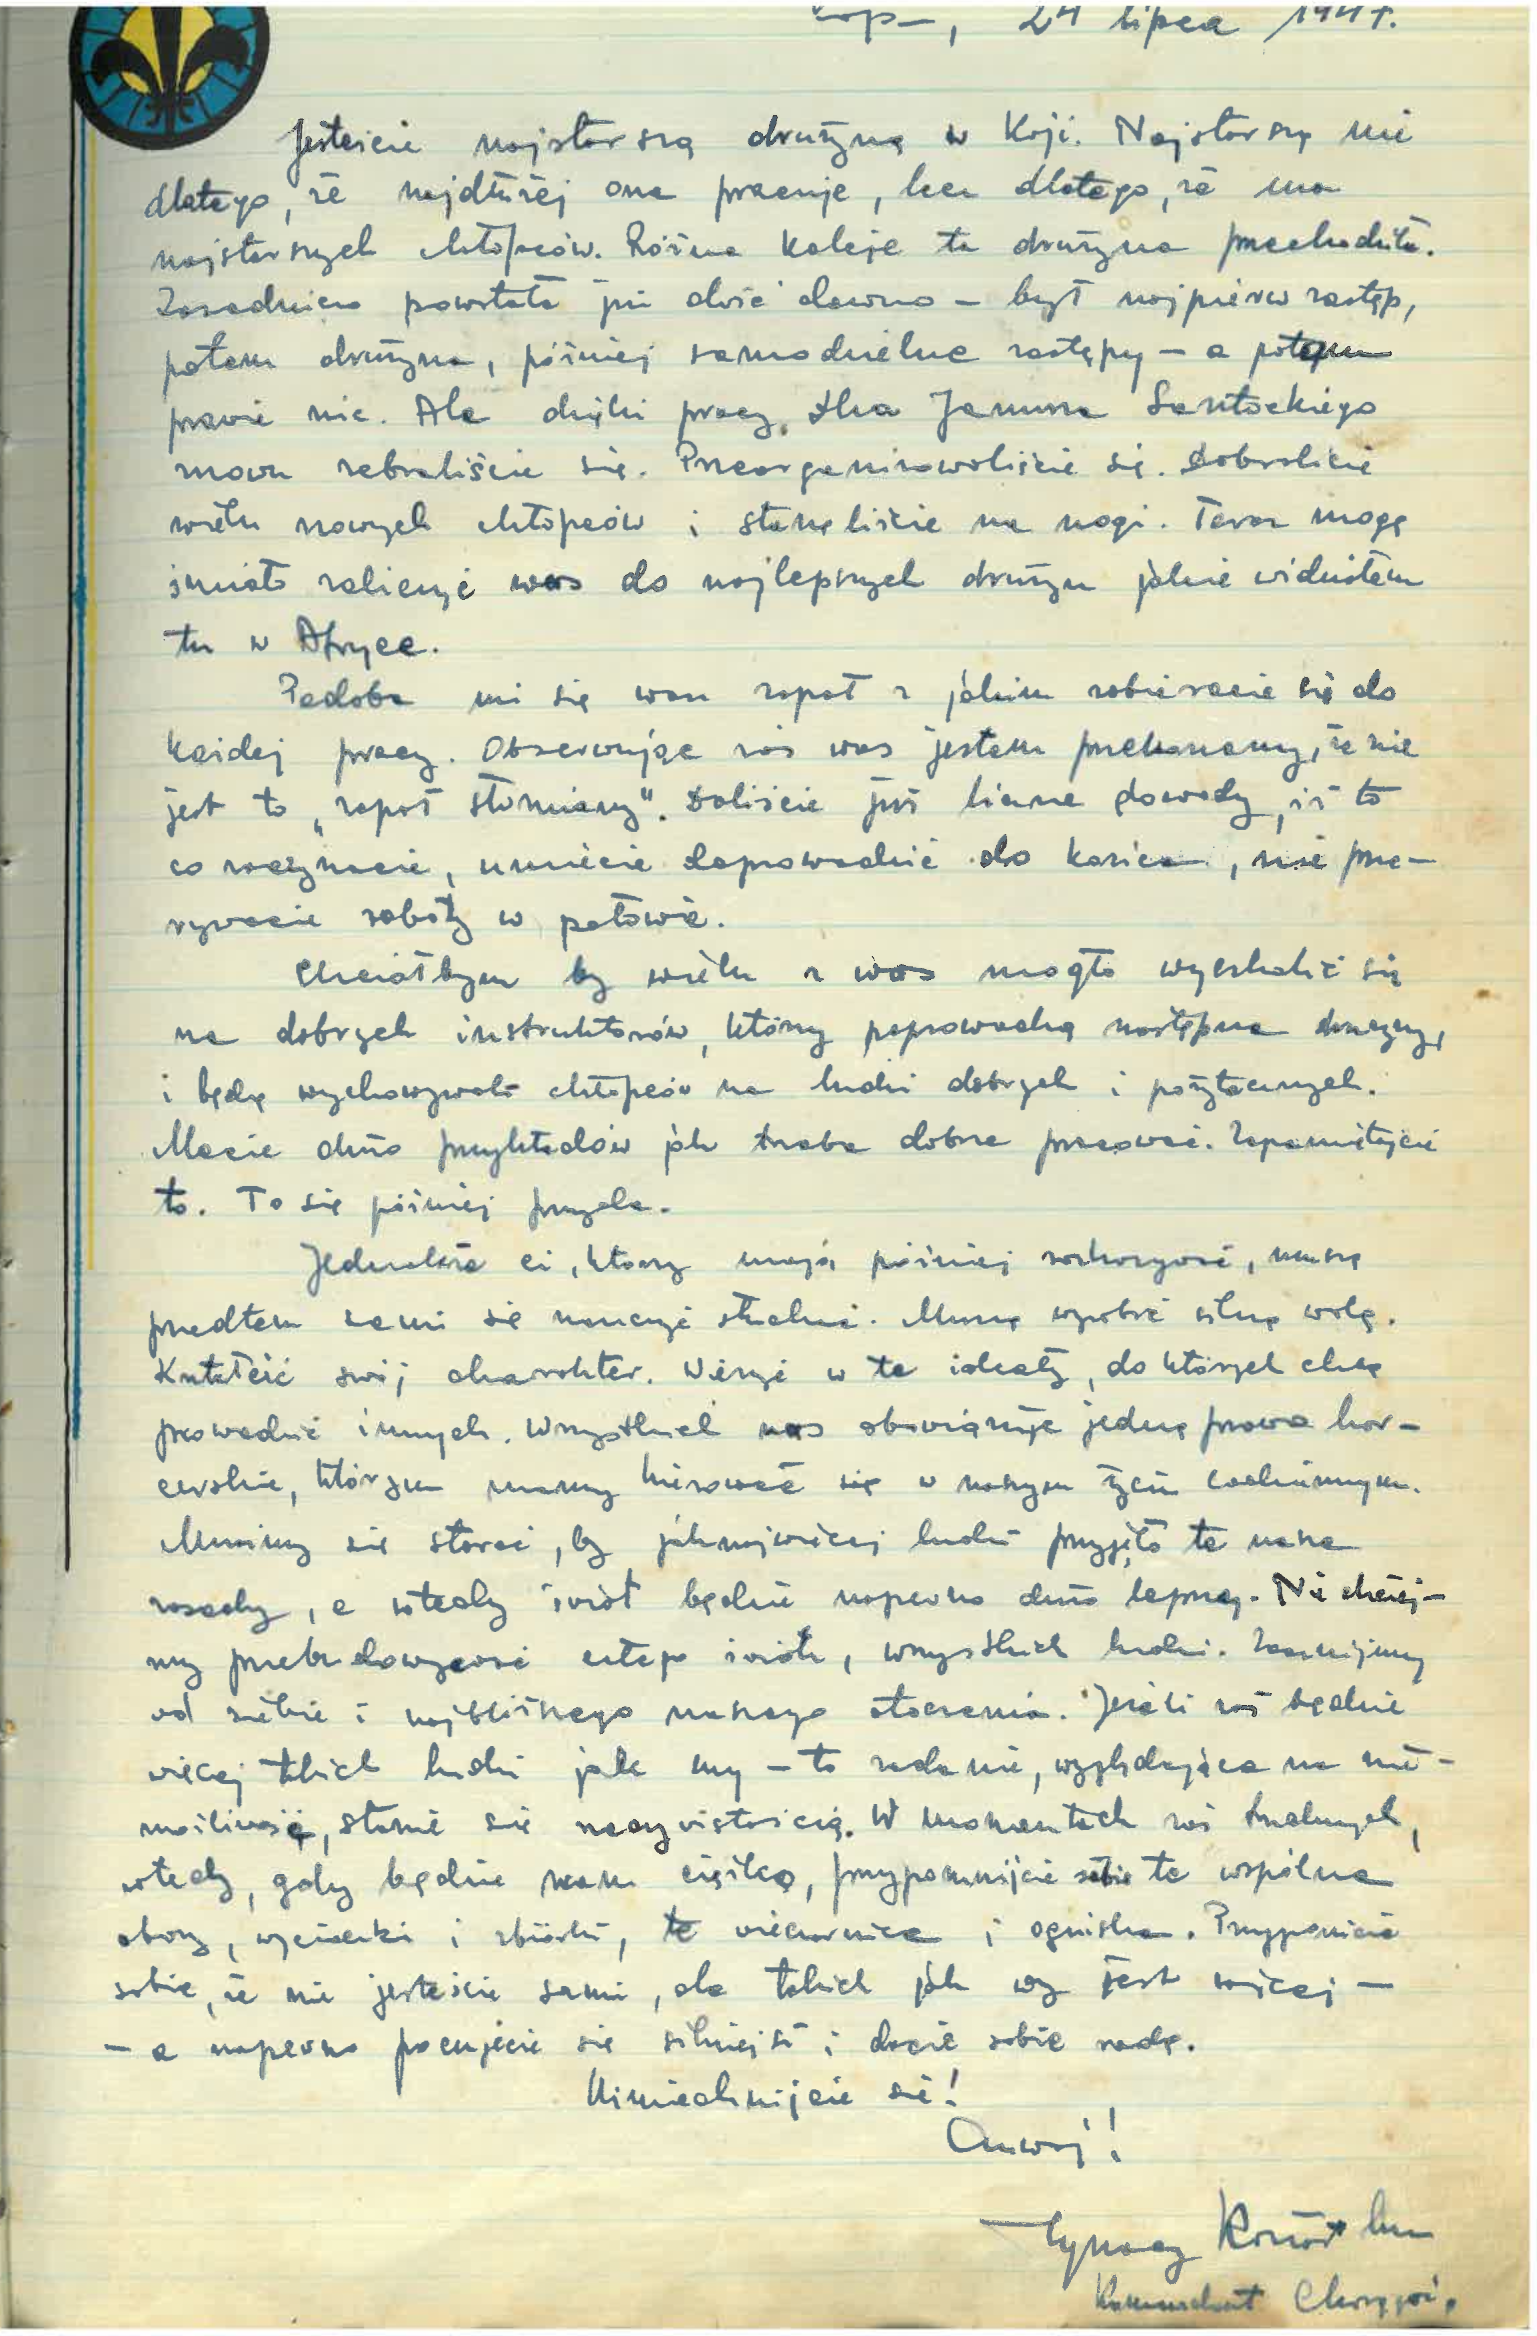 24 lipca 1947.
Jesteście najstarszą drużyną w Koji. Najstarszą nie
dlatego, że najdłużej ona pracuje, lecz dlatego, że ma
najstarszych chłopców. Różne koleje ta drużyna przechodziła.
Zasadniczo powstała już dość dawno – był najpierw zastęp,
potem drużyna, później samodzielne zastępy – a potem
prawie nic. Ale dzięki pracy dha Janusza Santockiego
znowu zebraliście się. Przeorganizowaliście się. Dobraliście
wielu nowych chłopców i stanęliście na nogi. Teraz mogę
śmiało zaliczyć was do najlepszych drużyn jakie widziałem
tu w Afryce.
Podoba mi się wasz zapał z jakim zabieracie się do
każdej pracy. Obserwując zaś was jestem przekonany, że nie
jest to „zapał słomiany". Daliście już liczne dowody, iż to
co zaczynacie, umiecie doprowadzić do końca, nie prze-
rywacie roboty w połowie.
Chciałbym by wielu z was mogło wyszkolić się
na dobrych instruktorów, którzy poprowadzą następne drużyny,
i będą wychowywali chłopców na ludzi dobrych i pożytecznych.
Macie dużo przykładów jak trzeba dobrze pracować. Zapamiętajcie
to. To się później przyda.
Jednakże ci, którzy mają później rozkazywać, muszą
przedtem sami się nauczyć słuchać. Muszą wyrobić silną wolę.
Kształcić swój charakter. Wierzyć w te ideały, do których chcą
prowadzić innych. Wszystkich nas obowiązuje jedno prawo har-
cerskie, którym mamy kierować się w naszym życiu codziennym.
Musimy się starać, by jaknajwięcej ludzi przyjęło te nasze
zasady, a wtedy świat będzie napewno dużo lepszy. Nie chciej-
my przebudowywać całego świata, wszystkich ludzi. Zacznijmy
od siebie i najbliższego naszego otoczenia. Jeżeli zaś będzie
więcej takich ludzi jak my – to zadanie, wyglądające na nie-
możliwość, stanie się rzeczywistością. W momentach zaś trudnych,
wtedy, gdy będzie wam ciężko, przypomnijcie sobie te wspólne
obozy, wycieczki i zbiórki, te wieczornice i ogniska. Przypomnicie
sobie, że nie jesteście sami, ale takich jak wy jest więcej –
– a napewno poczujecie się silniejsi i dacie sobie radę.
Uśmiechnijcie się!
Czuwaj!
Ignacy
Komendant Chorągwi.